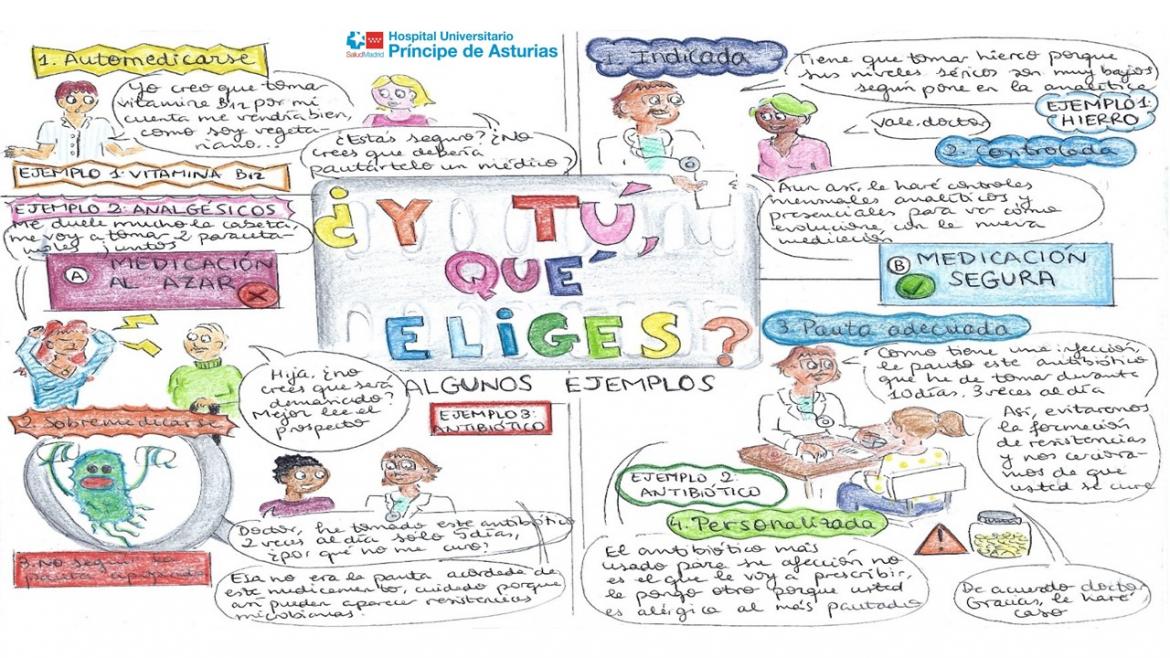 SaludMadrid
Hospital Universitario
Príncipe de Asturias
1. Automedicarse
Yo creo que toma
vitamina B12 por mi
cuenta me vendría bien,
como soy vegeta-
riano...
¿Estás seguro? ¿No
crees que debería
pautártelo un médico?
EJEMPLO 1: VITAMINA B12
EJEMPLO 2: ANALGÉSICOS
Me duele mucho la cabeza,
me voy a tomar 2 paraceta-
moles juntos
A MEDICACIÓN
AL AZAR
Hija, ¿no
crees que será
demasiado?
Mejor lee el
prospecto
2. Sobremedicarse
EJEMPLO 3:
ANTIBIÓTICO
Doctor, he tomado este antibiótico
2 veces al día sólo 5 días,
¿por qué no me curo?
3. No seguir la
pauta
Esa no era la pauta acordada de
este medicamento, cuidado porque
así pueden aparecer resistencias
microbianas.
¿Y TÚ,
QUÉ
ELIGES?
ALGUNOS EJEMPLOS
1. Indicada
Tiene que tomar hierro porque
sus niveles séricos son muy bajos
según pone en la analítica
EJEMPLO 1:
HIERRO
Vale, doctor
2. Controlada
Aun así, le haré controles
mensuales analíticos y
presenciales para ver cómo
evoluciona con la nueva
medicación
B MEDICACIÓN
SEGURA
3. Pauta adecuada
Como tiene una infección,
le pauto este antibiótico
que ha de tomar durante
10 días, 3 veces al día
Así, evitaremos
la formación
de resistencias
y nos cerciora-
mos de que
usted se cure
EJEMPLO 2:
ANTIBIÓTICO
4. Personalizada
El antibiótico más
usado para su afección no
es el que le voy a prescribir,
le pongo otro porque usted
es alérgica al más pautado
De acuerdo doctor,
Gracias, le haré
caso